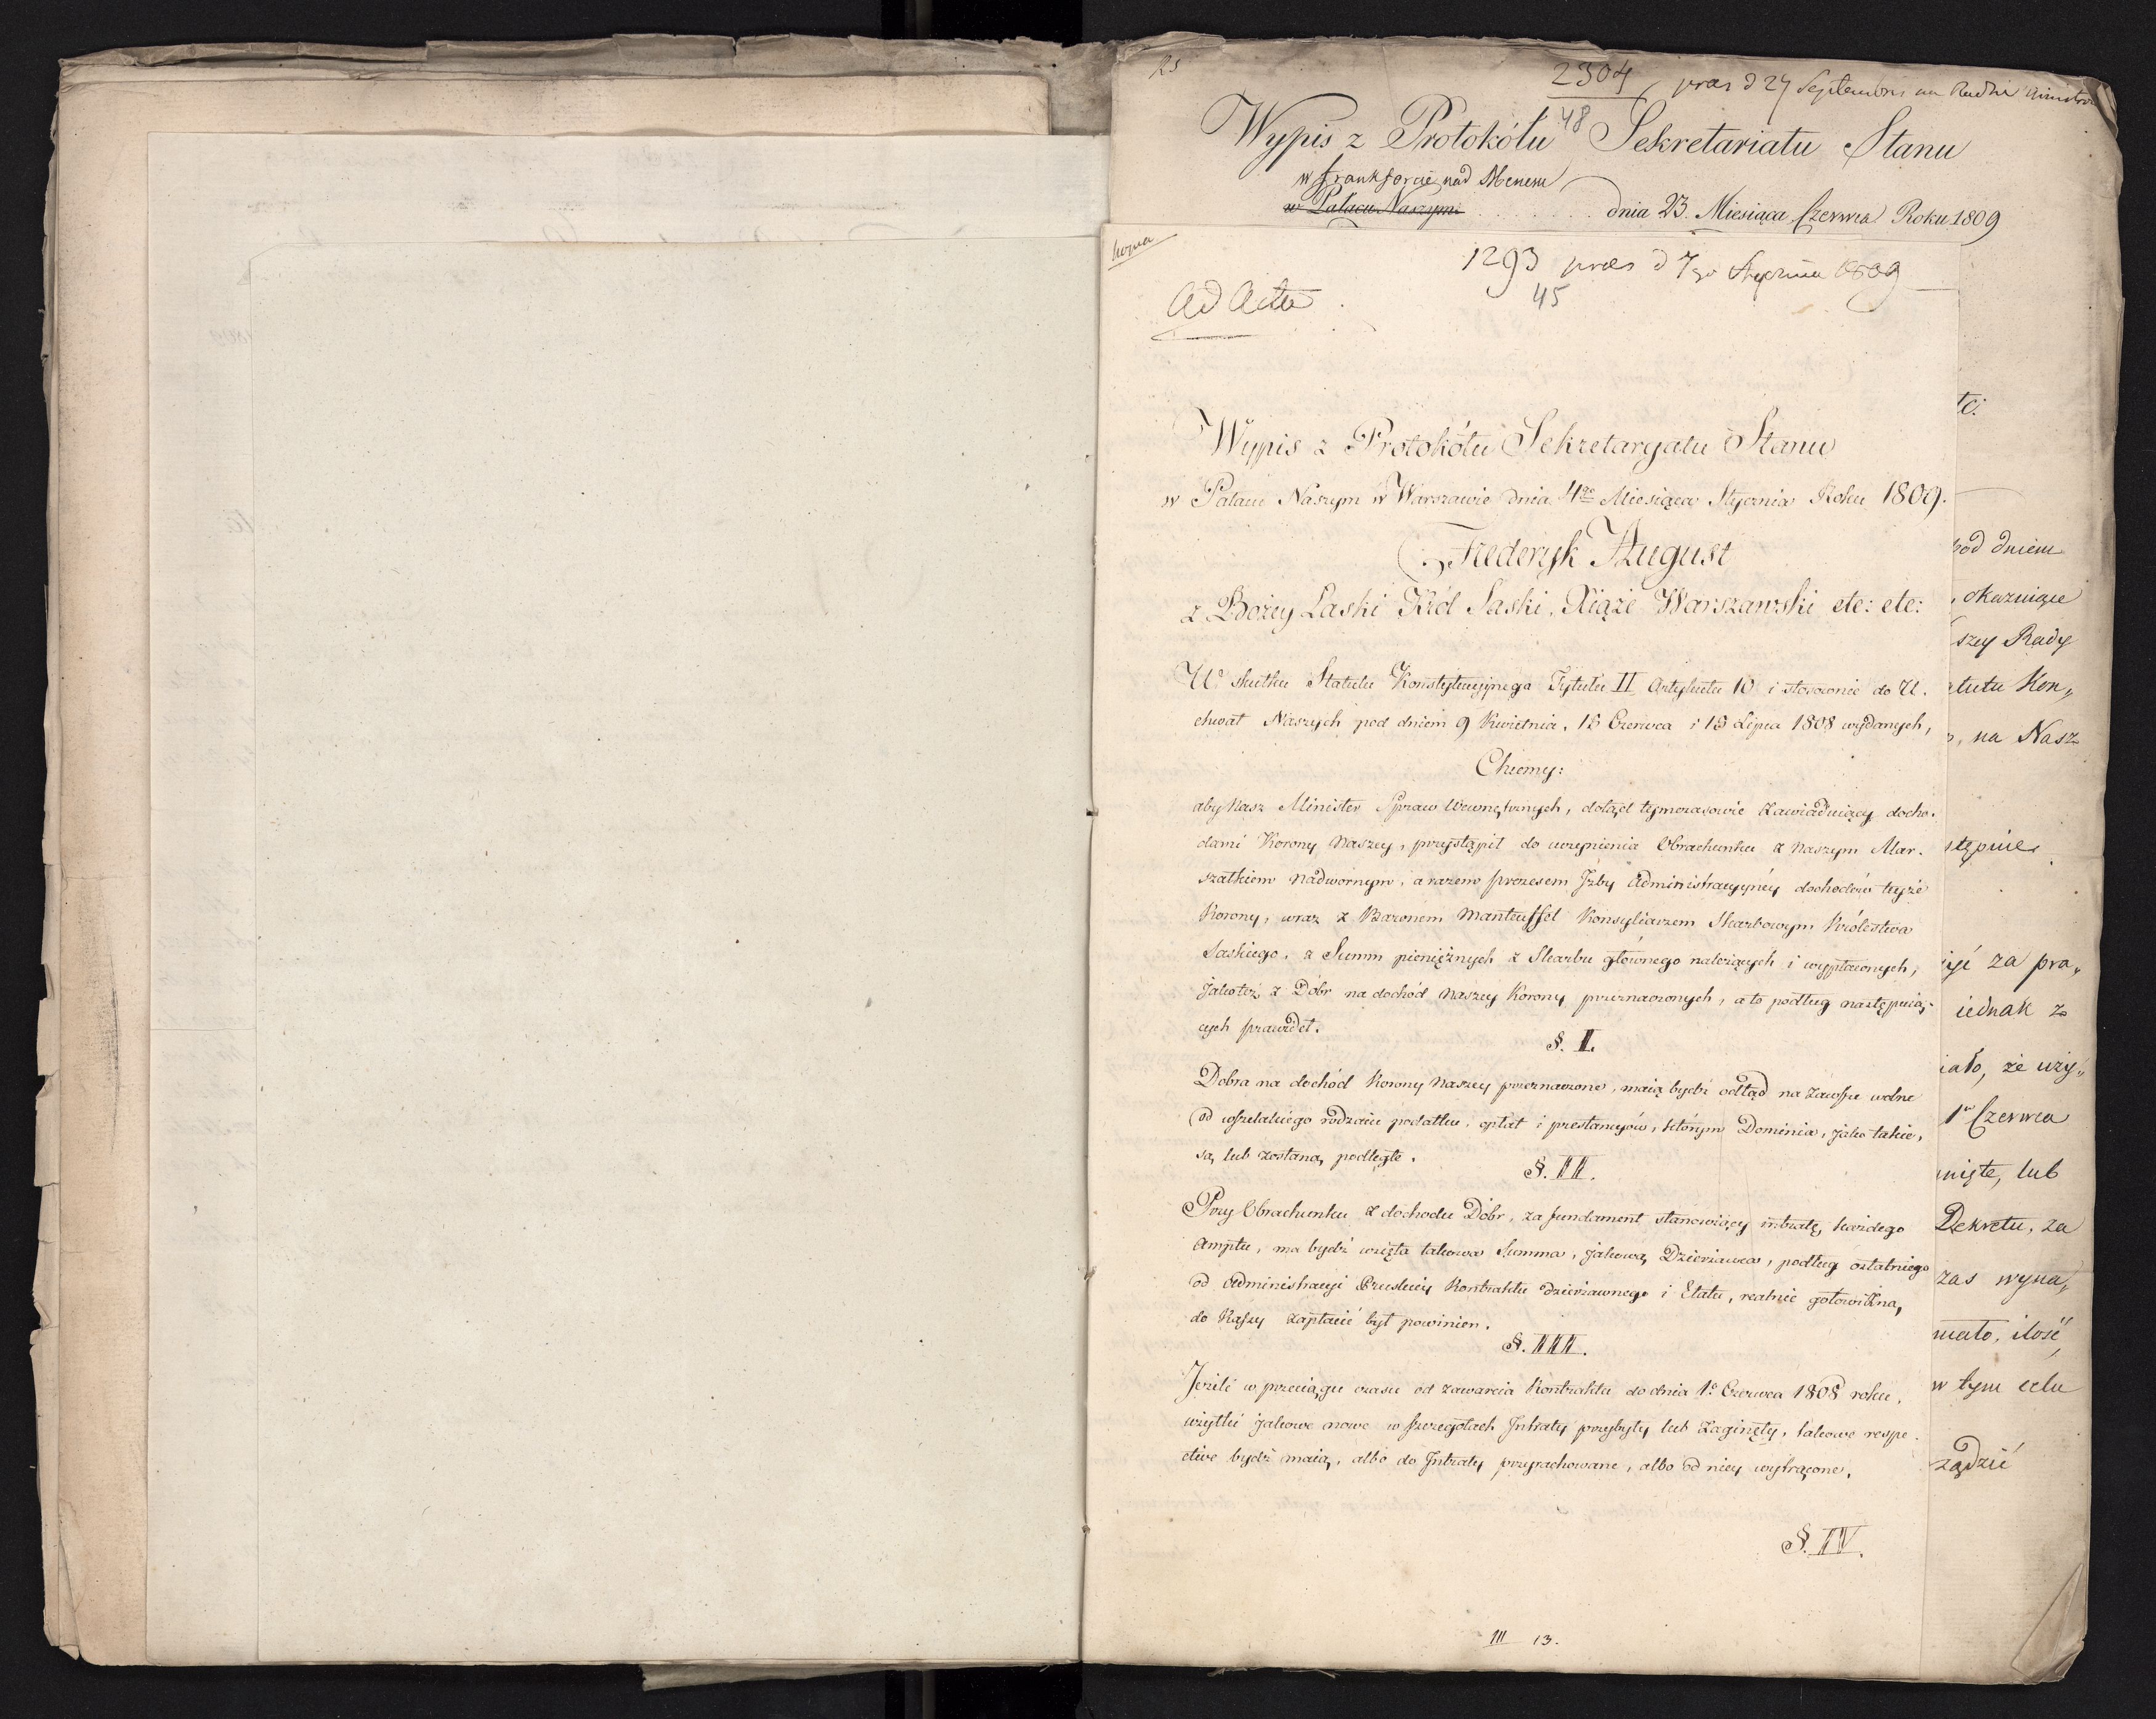 25
2304 pras d 27 Septembris na Radzie
48
Wypis z Protokółu Sekretariatu Stanu
w Frankforcie nad Menem
w Pałacu Naszym . . . . . . . dnia 23. Miesiąca Czerwca Roku 1809
kopia
1293 præs d 7go Stycznia 1809
45
Ad Acta
Wypis z Protokółu Sekretaryatu Stanu
w Pałacu Naszym w Warszawie dnia 4go Miesiąca Stycznia Roku 1809.
Frederyk August
z Bożey Łaski Król Saski, Xiąże Warszawski etc: etc:
W skutku Statutu Konstytucyjnego Tytułu II Artykułu 10 i stosownie do U.
chwał Naszych pod dniem 9 Kwietnia, 15 Czerwca i 15 Lipca 1808 wydanych,
Chcemy:
aby Nasz Minister Spraw Wewnętrznych, dotąd tymczasowie zawiaduiący docho.
dami Korony Naszey, przystąpił do uczynienia Obrachunku z Naszym Mar.
szałkiem Nadwornym, a razem prezesem Izby Administracyyney dochodów teyże
Korony, wraz z Baronem Manteuffel Konsyliarzem Skarbowym Królestwa
Saskiego, z Summ pieniężnych z Skarbu głównego należących i wypłaconych,
jakoteż z Dóbr na dochód Naszey Korony przeznaczonych, a to podług następuią,,
cych prawideł.
§. I.
Dobra na dochód Korony Naszey przeznaczone, maią bydź odtąd na zawsze wolne
od wszelakiego rodzaiu podatku, opłat i prestancyów, którym Dominia, jako takie,
są, lub zostaną podległe.
§. II.
Przy Obrachunku z dochodu Dóbr, za fundament stanowiący intratę każdego
Amptu, ma bydź wzięta takowa Summa, jakową Dzierżawca, podług ostatniego
od Administracyi Pruskiey Kontraktu dzierżawnego i Etatu, realnie gotowizną,
do Kassy zapłacić był powinien.
§. III.
Jeżeli w przeciągu czasu od zawarcia Kontraktu do dnia 1o Czerwca 1808 roku,
użytki jakowe nowe w szczegółach Intraty przybyły lub zaginęły, takowe respe.
ctive bydź maią, albo do Intraty przyrachowane, albo od niey wytrącone.
§. IV.
III 13.
tc:
pod dniem
, okazuiące
szey Rady
tutu Kon,,
, na Nasz
stępnie
iyć za pra,,
iednak z
iało, że uży,,
1o Czerwca
nięte, lub
Dekretu, za
zas wyna,,
mało, ilość,
w tym celu
ządzić